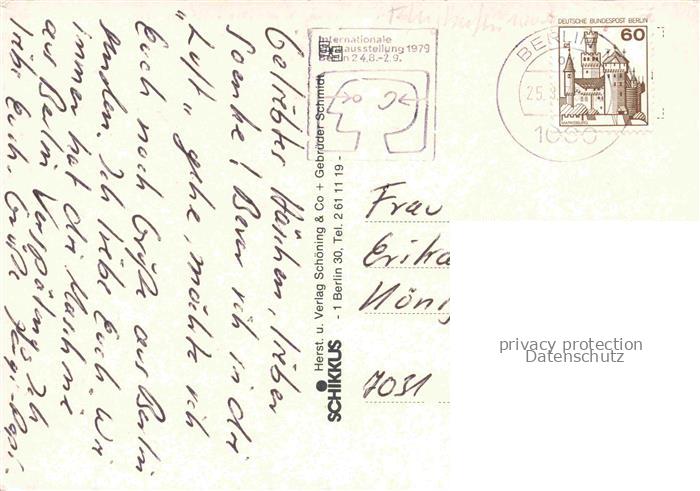 Geliebtes Häschen, lieber
Soenke! Bevor ich in die
"Luft" gehe, möchte ich
Euch noch Grüße aus Berlin
senden. Ich liebe Euch. Wie
immer hat die Maschine
aus Berlin Verspätung. Ich
liebe Euch. Grüße
Herst. u. Verlag Schöning & Co + Gebrüder Schmidt
SCHIKKUS - 1 Berlin 30, Tel. 2 61 11 19 -
Internationale
Funkausstellung 1979
Berlin 24.8.-2.9.
BERLIN
25.8
1000
DEUTSCHE BUNDESPOST BERLIN
60
MARKSBURG
Frau
Erika
König
7031
privacy protection
Datenschutz